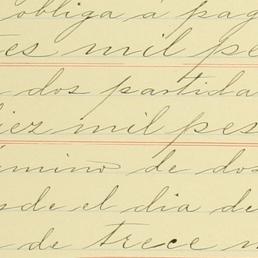 obliga á pag
tes mil pe
dos partida
diez mil pes
érmino de dos
sde el dia de
de trece m